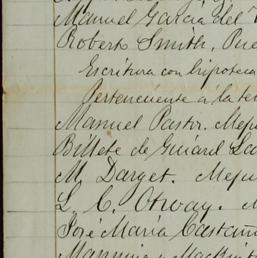 Manuel Garcia del
Roberto Smith, Pue
Escritura con hipoteca
Perteneciente á la te
Manuel Pastor. Meju
Billete de
M. Darget. Meju
L. C. Otway.
José Maria Castañ